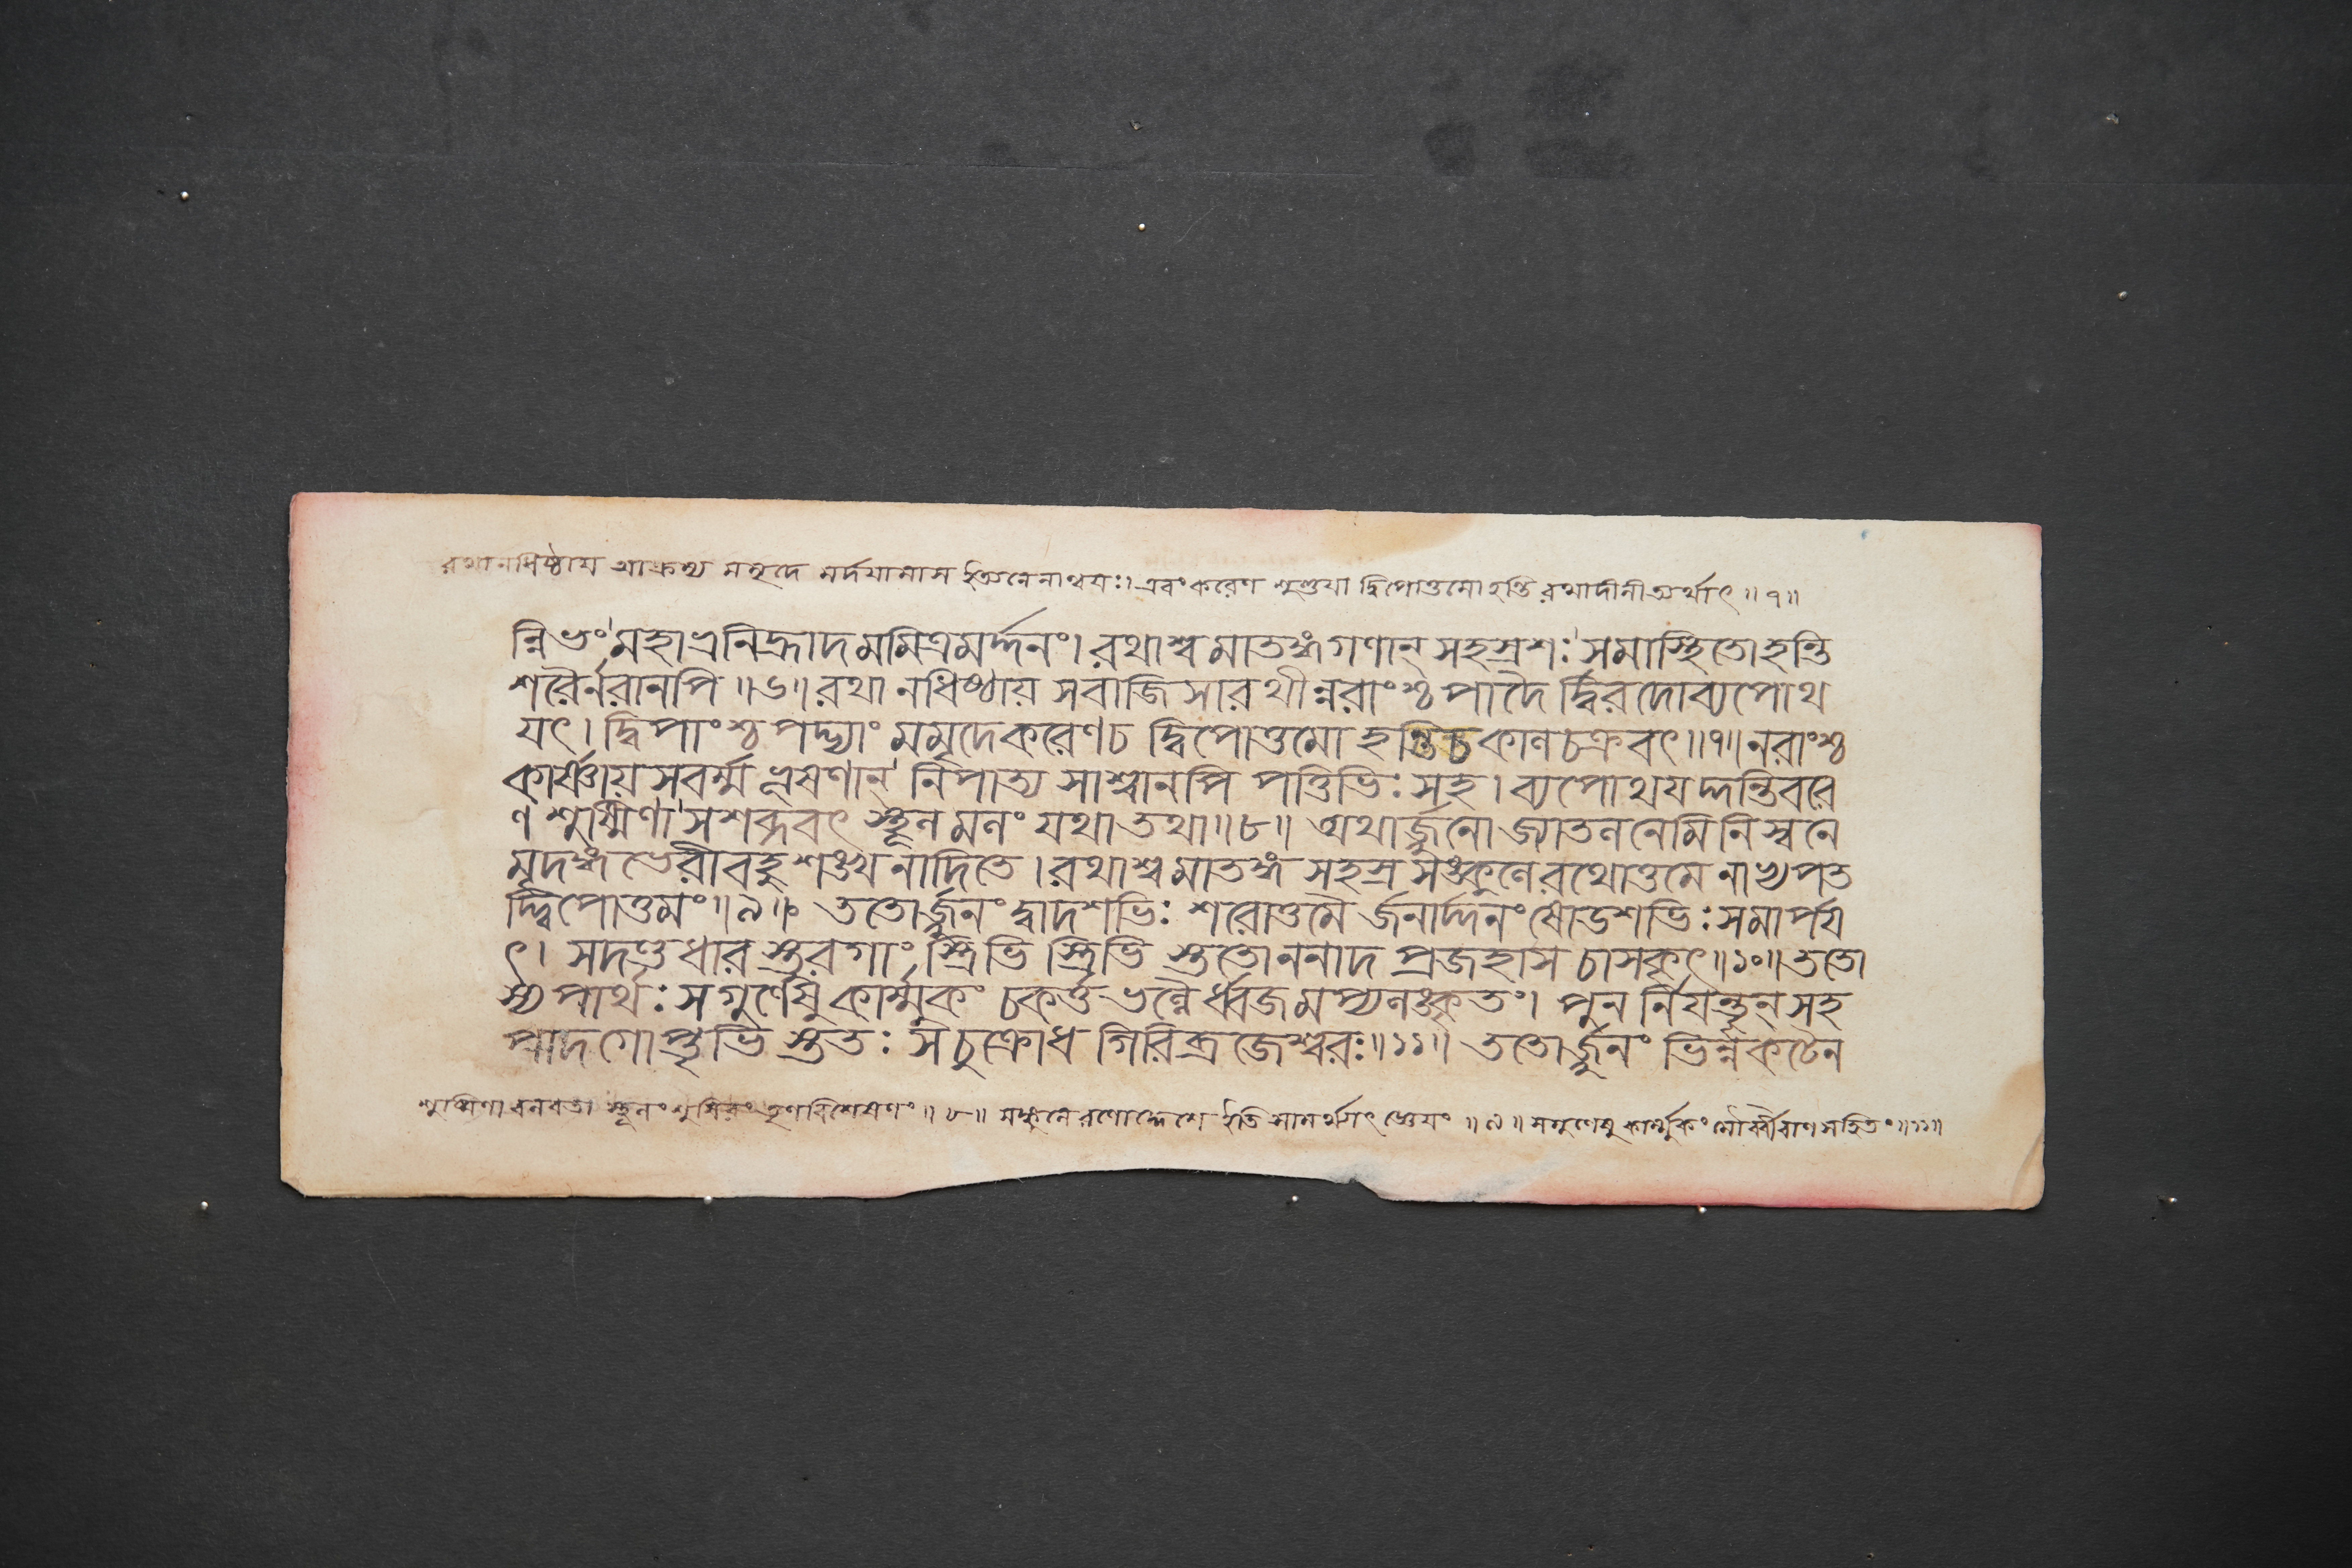 রথানধিষ্ঠায় আক্রম্য মমৃদে মর্দয়ামাস ইত্যনেনান্বয়ঃ। এবং করেণ শুণ্ডয়া দ্বিপোত্তমো হন্তি রথাদীনীত্যর্থাৎ ॥ ৭॥
ন্নিভং মহাভ্রনির্হ্রাদমমিত্রমর্দ্দনং। রথাশ্বমাতঙ্গগণান্ সহস্রশঃ সমাস্থিতো হন্তি
শরৈর্নরানপি ॥৬॥ রথানধিষ্ঠায় সবাজিসারথীন্নরাংশ্চ পাদৈ র্দ্বিরদোব্যপোথ
যৎ। দ্বিপাংশ্চ পদ্ভ্যাং মমৃদে করেণ চ দ্বিপোত্তমো হন্তি চ কালচক্রবৎ॥৭॥ নরাংশ্চ
কার্ষ্ণায়সবর্ম্মভূষণান্ নিপাত্য সাশ্বানপি পত্তিভিঃ সহ। ব্যপোথযদ্দন্তিবরে
ণ শুষ্মিণা সশব্দবৎ স্থূলনলং যথা তথা॥৮॥ অথার্জ্জুনো জ্যাতলনেমিনিস্বনে
মৃদঙ্গভেরীবহুশঙ্খনাদিতে। রথাশ্বমাতঙ্গসহস্রসঙ্কুলে রথোত্তমেনাভ্যপত
দ্দ্বিপোত্তমং॥৯॥ ততোর্জ্জুনং দ্বাদশভিঃ শরোত্তমৈ র্জনার্দ্দনং ষোডশভিঃ সমার্পয
ৎ। সদণ্ডধার স্তুরগাং স্ত্রিভি স্ত্রিভি স্ততোননাদ প্রজহাস চাসকৃৎ॥১০॥ ততো
স্য পার্থঃ সগুণেষুকার্ম্মুকং চকর্ত্ত ভল্লৈর্ধ্বজমপ্যলঙ্কৃতং। পুনর্নিযন্তৄন্ সহ
পাদগোপ্তৃভি স্ততঃ স চুক্রোধ গিরিব্রজেশ্বরঃ॥১১॥ ততোর্জ্জুনং ভিন্নকটেন
শুষ্মিণা বলবতা স্থূলং শুষিরং তৃণবিশেষণং॥ ৮॥ সঙ্কুলে রণোদ্দেশে ইতি সামর্থ্যাৎ জ্ঞেয়ং ॥ ৯॥ সগুণেষুকার্ম্মুকং মৌর্ব্বীবাণসহিতং॥১১॥